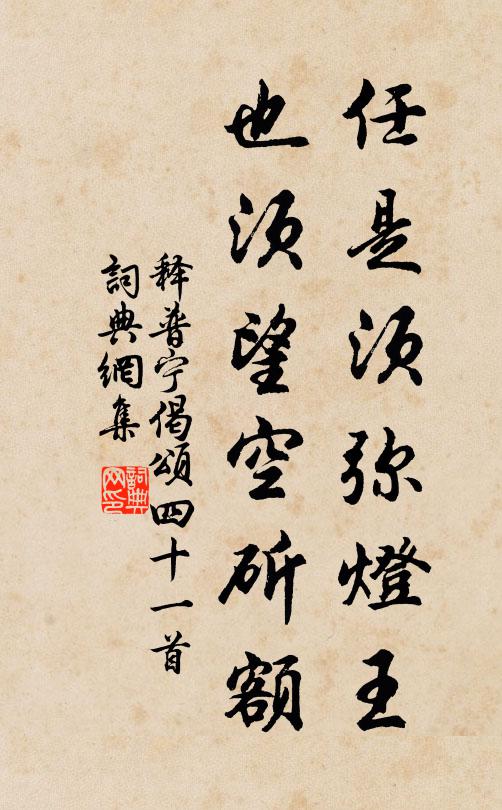 任是须弥燈王
也须望空斫額
释普宁偈頌四十一首
詞典網集
詞典網印